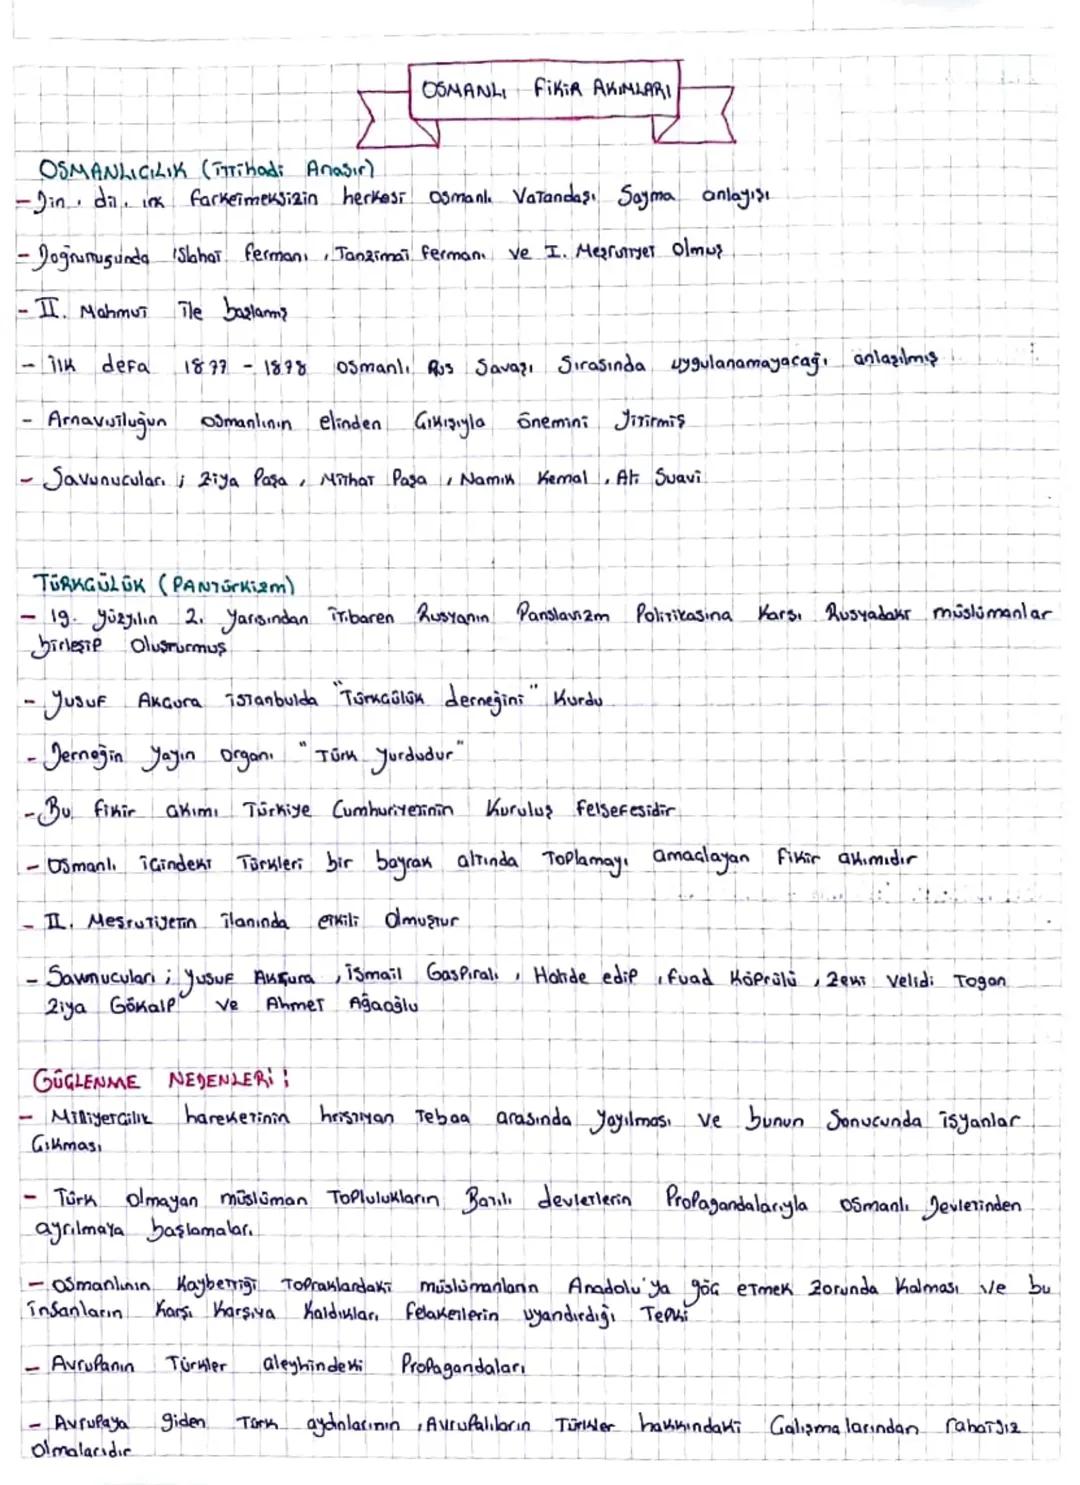 OSMANLI FİKİR AKIMLARI
OSMANLICILIK (İttihadi Anasır)
- Din, dil, ırk farketmeksizin herkesi Osmanlı Vatandaşı Sayma anlayışı
- Doğrumuşunda Islahat fermanı, Tanzimat fermanı ve I. Meşrutiyet Olmuş
- II. Mahmut ile başlamış
- İlk defa 1877 - 1878 Osmanlı Rus Savaşı Sırasında uygulanamayacağı anlaşılmış
- Arnavutluğun Osmanlının elinden Çıkışıyla önemini Yitirmiş
- Savunucuları; Ziya Paşa, Mithat Paşa, Namık Kemal, Ali Suavi
TÜRKÇÜLÜK (PANTÜRKİZM)
- 19. yüzyılın 2. yarısından itibaren Rusyanın Panslavizm Politikasına Karşı Rusyadaki müslümanlar
birleşip Oluşturmuş
- Yusuf Akçura İstanbulda "Türkçülük derneğini" Kurdu
- Derneğin yayın organı "Türk Yurdudur"
- Bu fikir akımı Türkiye Cumhuriyetinin Kuruluş felsefesidir
- Osmanlı içindeki Türkleri bir bayrak altında Toplamayı amaçlayan fikir akımıdır
- II. Meşrutiyetin ilanında etkili Olmuştur
- Savunucuları; Yusuf Akçura, İsmail Gaspıralı, Halide edip, fuad Köprülü, Zeki Velidi Togan
Ziya Gökalp ve Ahmet Ağaoğlu
GÜÇLENME NEDENLERİ:
- Milliyetçilik hareketinin hristiyan Tebaa arasında yayılması ve bunun Sonucunda isyanlar
Çıkması
- Türk olmayan müslüman Toplulukların Batılı devletlerin Propagandalarıyla Osmanlı Devletinden
ayrılmaya başlamaları
- Osmanlının Kaybettiği Topraklardaki müslümanların Anadolu'ya göç etmek Zorunda Kalması ve bu
insanların Karşı Karşıya Kaldıkları felaketlerin uyandırdığı Tepki
- Avrupanın Türkler aleyhindeki Propagandaları
- Avrupaya giden Türk aydınlarının, Avrupalıların Türkler hakkındaki Çalışmalarından rahatsız
Olmalarıdır